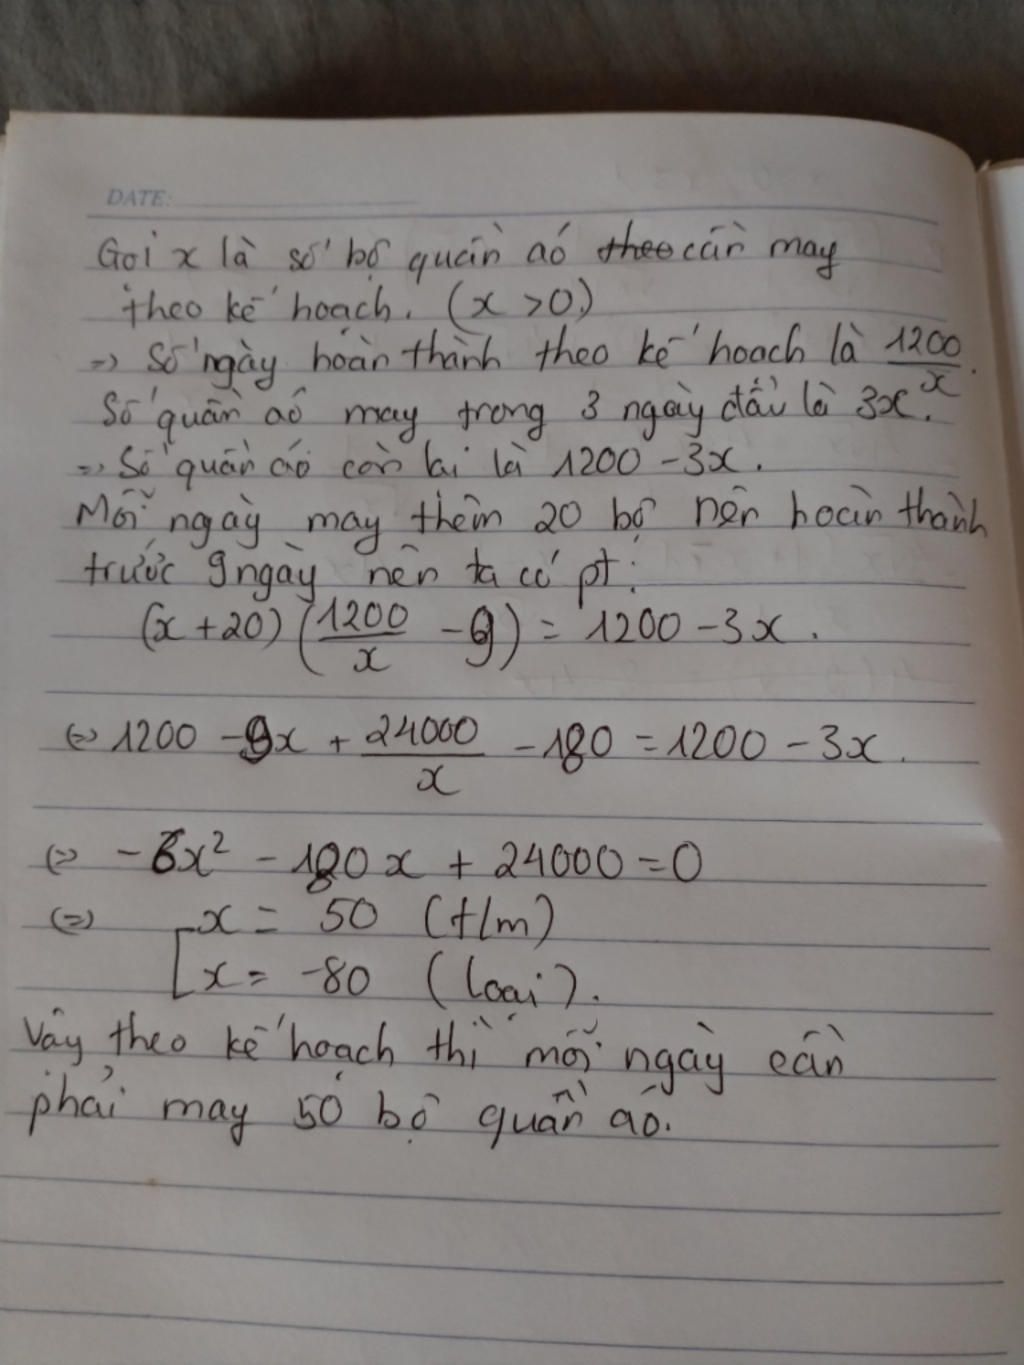 DATE:
Gọi x là số bộ quần aó theo cần may
theo kế hoạch. (x >0)
=> Số ngày hoàn thành theo kế hoạch là 1200/x.
Số quần aó may trong 3 ngày đầu là 3x.
=> Số quần áo còn lại là 1200 - 3x.
Mỗi ngày may thêm 20 bộ nên hoàn thành
trước 9 ngày nên ta có pt:
(x + 20) (1200/x - 9) = 1200 - 3x.
(=) 1200 - 9x + 24000/x - 180 = 1200 - 3x.
(=) - 6x² - 180x + 24000 = 0
(=) [ x = 50 (t/m)
x = -80 (loại).
Vậy theo kế hoạch thì mỗi ngày cần
phải may 50 bộ quần aó.